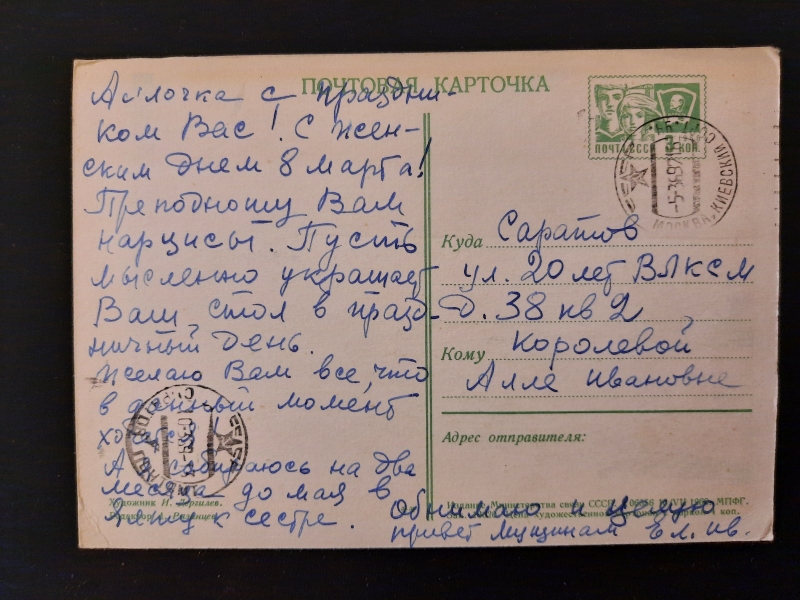 ПОЧТОВАЯ КАРТОЧКА
Аллочка с праздни-
ком Вас! С Жен-
ским днем 8 марта!
Преподношу Вам
нарцисы. Пусть
мысленно украшает
Ваш стол в празд-
ничный день.
Желаю Вам все, что
в данный момент
А собираюсь на два
месяца до мая в
к сестре.
Обнимаю и целую
привет мущинам Ел. Ив.
ПОЧТА СССР
КОП.
МОСКВА, КИЕВСКИЙ
Куда Саратов
ул. 20 лет ВЛКСМ
Д. 38 кв 2
Кому Королевой
Алле Ивановне
Адрес отправителя:
Художник И. Дергилев.
Издание Министства связи СССР.